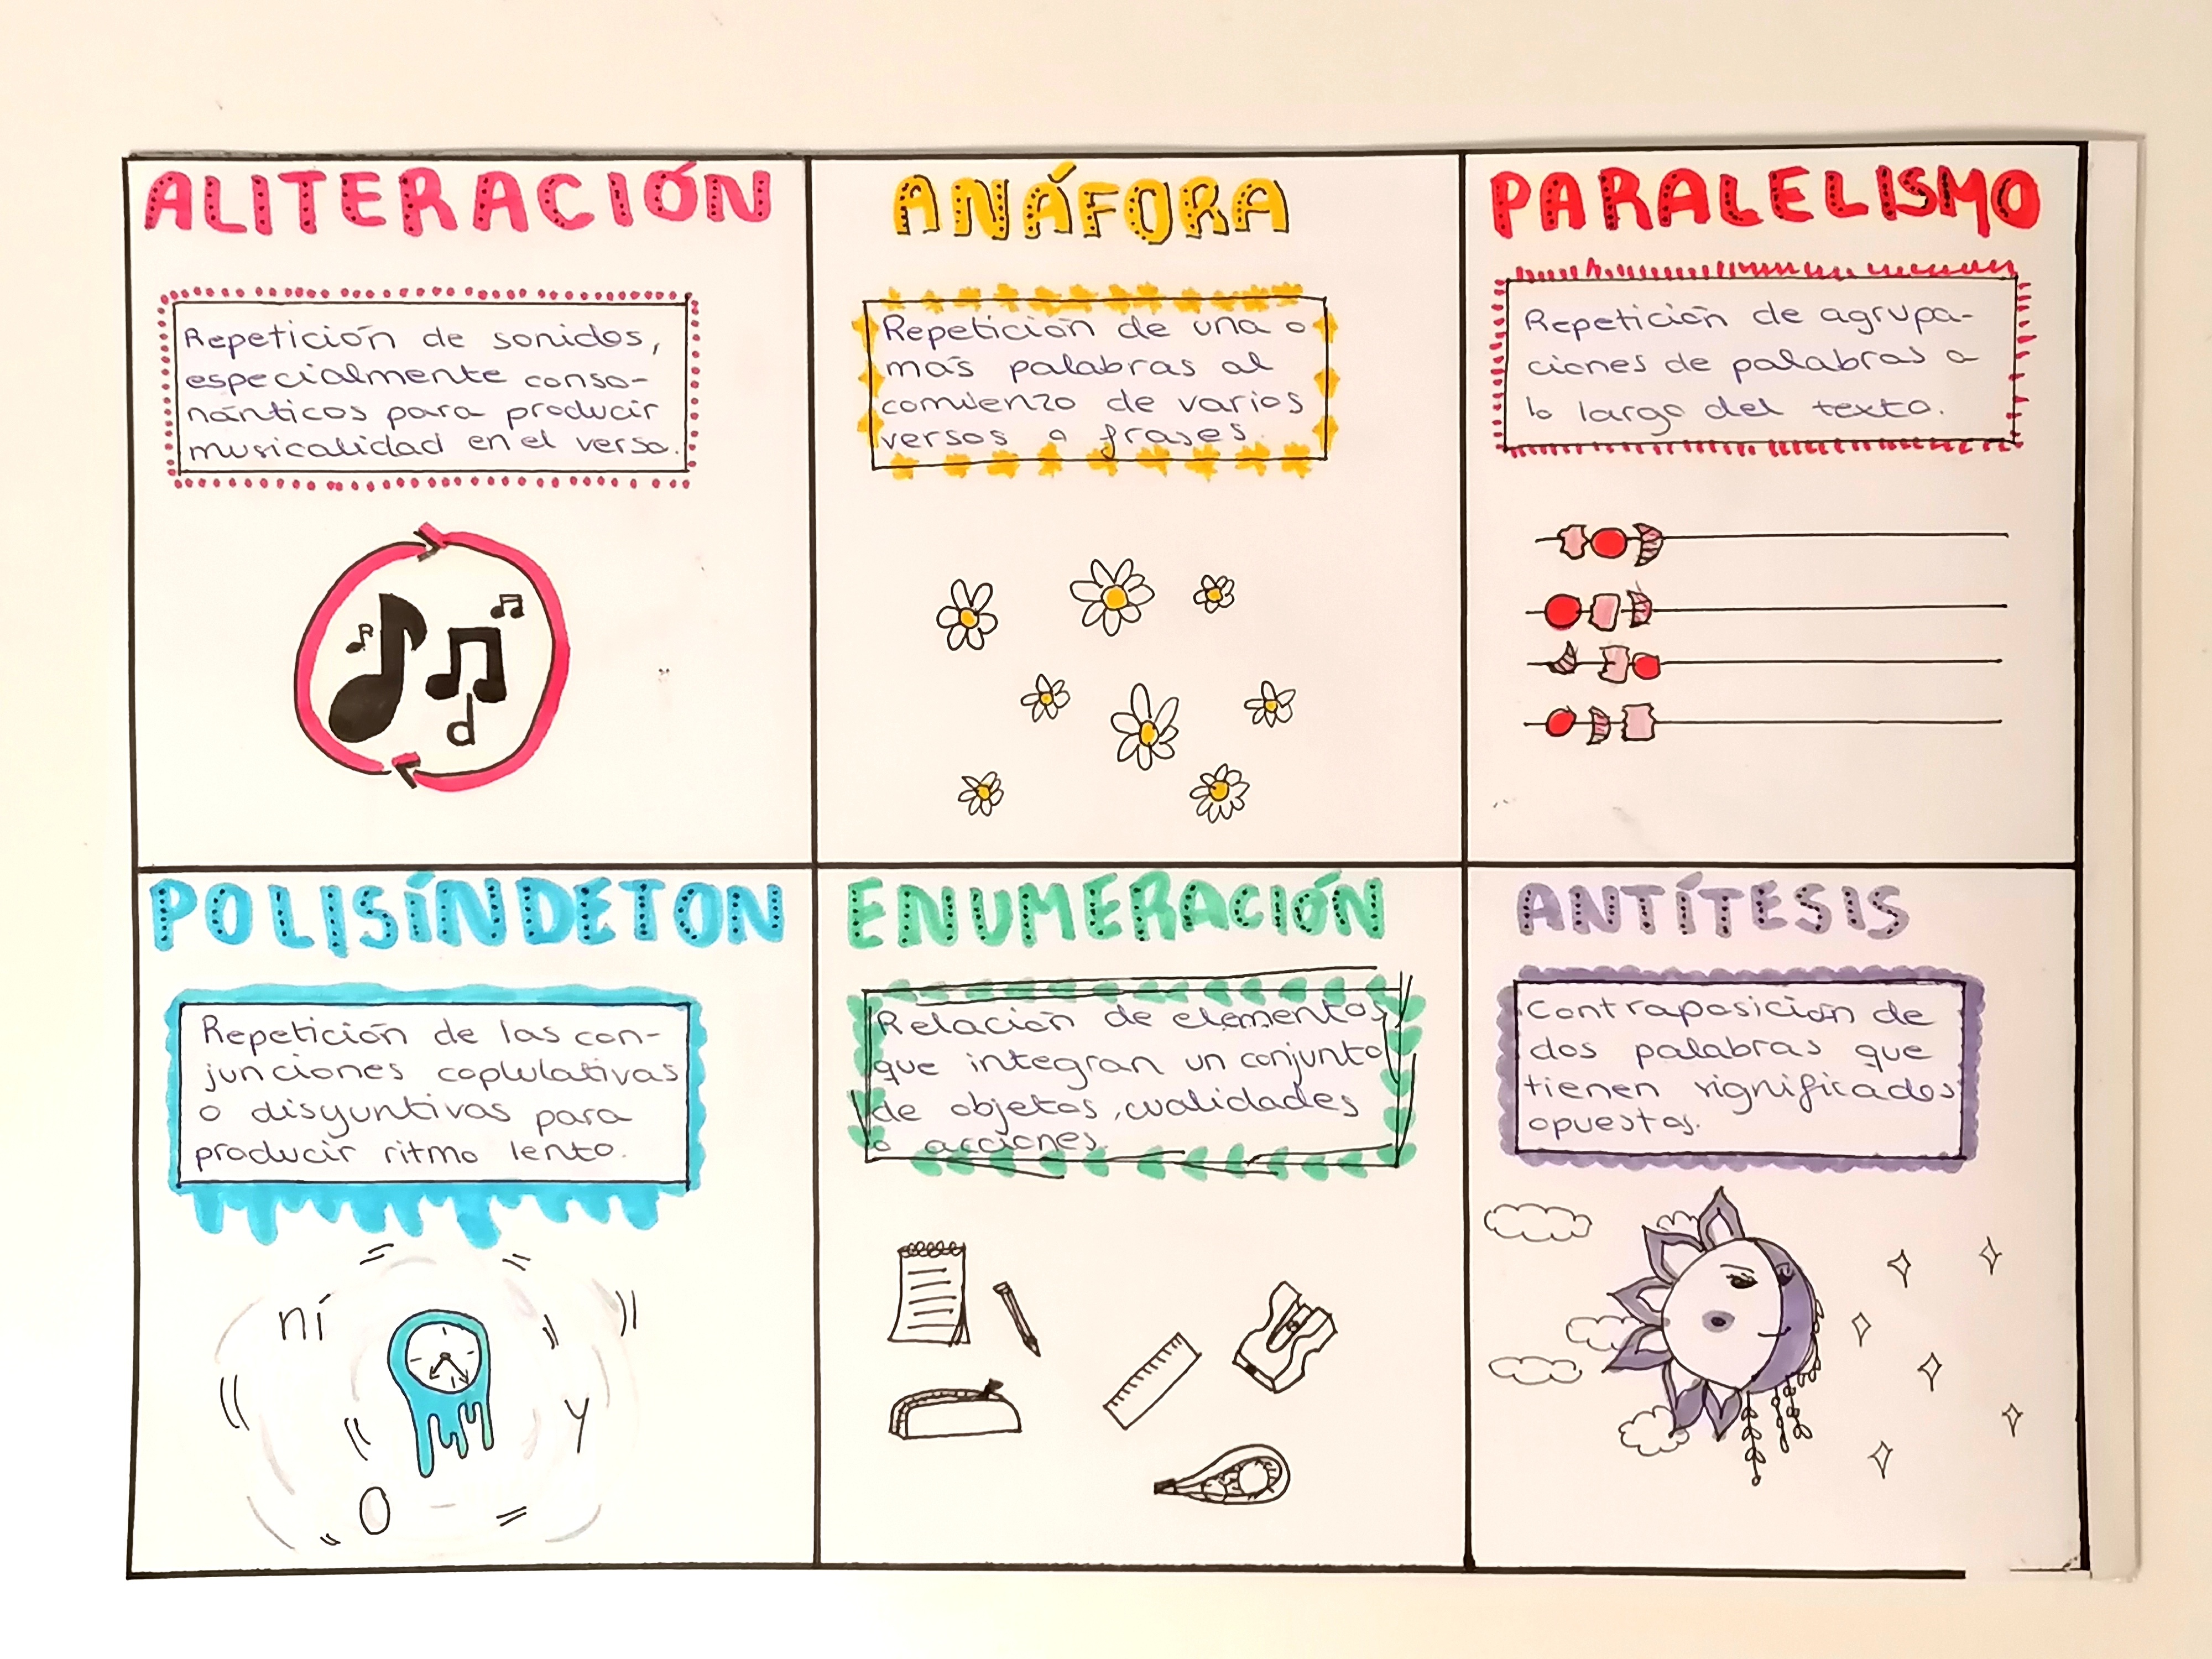 ALITERACIÓN
Repetición de sonidos,
especialmente conso-
nánticos para producir
musicalidad en el verso.
ANÁFORA
Repetición de una o
más palabras al
comienzo de varios
versos o frases.
PARALELISMO
Repetición de agrupa-
ciones de palabras a
lo largo del texto.
POLISÍNDETON
Repetición de las con-
junciones coplulativas
o disyuntivas para
producir ritmo lento.
ní
y
O
ENUMERACIÓN
Relación de elementos
que integran un conjunto
de objetos, cualidades
o acciones.
ANTÍTESIS
Contraposición de
dos palabras que
tienen significados
opuestos.